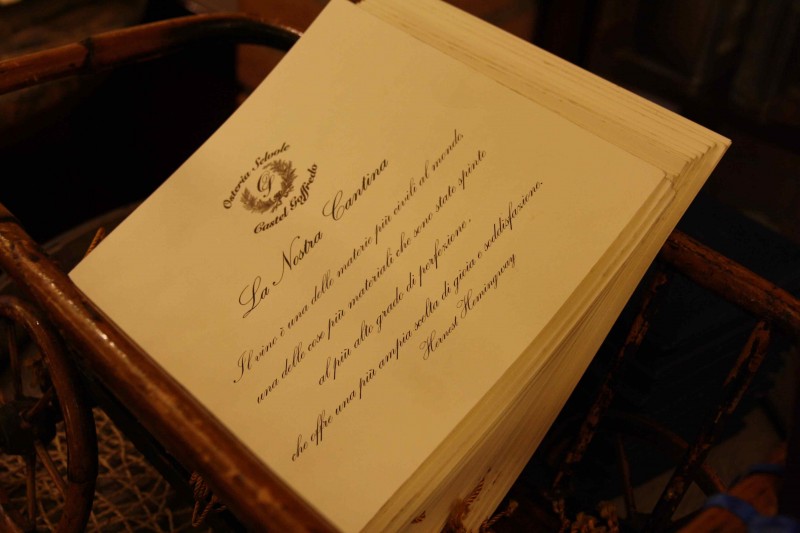 Osteria Selvole
G
Castel Goffredo
La Nostra Cantina
Il vino è una delle materie più civili al mondo,
una delle cose più materiali che sono state spinte
al più alto grado di perfezione,
che offre una più ampia scelta di gioia e soddisfazione.
Hernest Hemingway